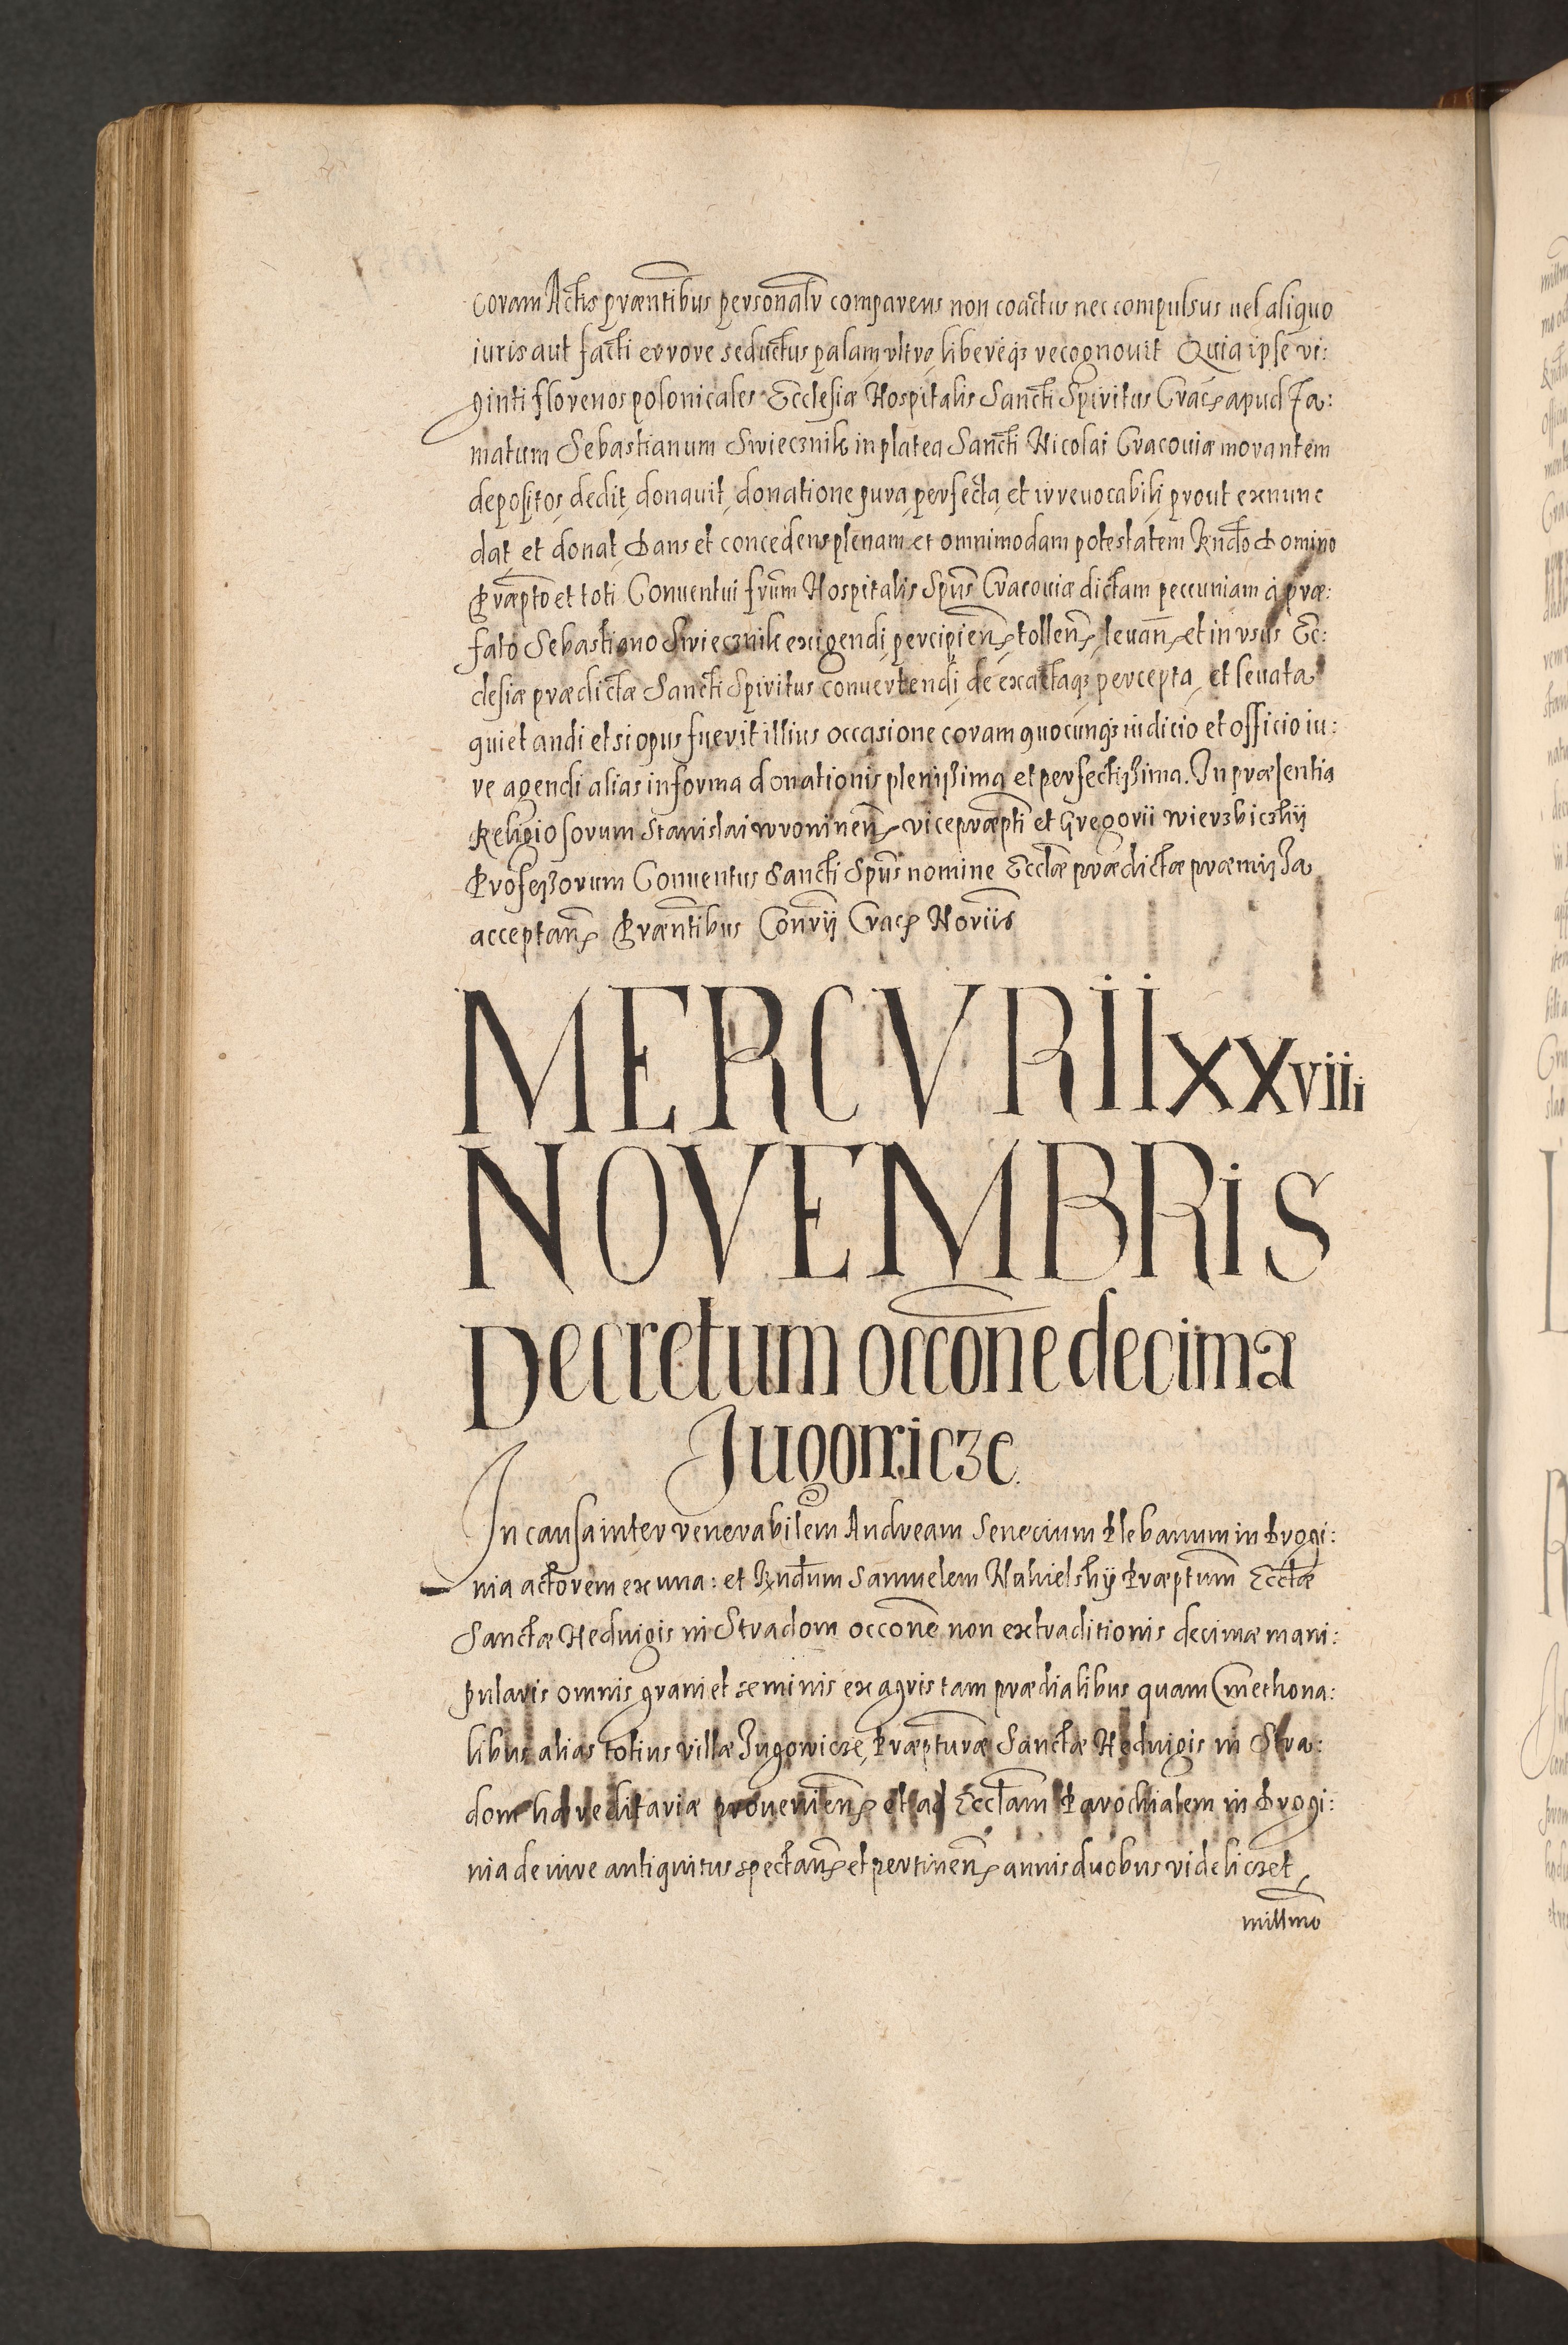 coram Actis præntibus personalr comparens non coactus nec compulsus vel aliquo
iuris aut facti errore seductus palam, vltro, libereq3 recognouit Quia ipse vi:
ginti florenos polonicales Ecclesiæ Hospitalis Sancti Spiritus Crac apud Fa:
matum Sebastianum Swiecznik in platea Sancti Nicolai Cracouiæ morantem
depositos, dedit, donauit, donatione pura, perfecta, et irreuocabili, prout ex nunc
dat, et donat Dans et concedens plenam et omnimodam potestatem Rndo Domino
Præpto et toti Conuentui frum Hospitalis Spus Cracouiæ dictam peccuniam à præ:
fato Sebastiano Swiecznik exigendi, percipien, tollen, leuan, et in vsus Ec:
clesiæ prædictæ Sancti Spiritus conuertendi, de exactaq3 percepta, et leuata
quietandi et si opus fuerit illius occasione coram quocunq3 iudicio et officio iu:
re agendi alias in forma donationis plenißima et perfectißima. In præsentia
Religiosorum Stanislai wroninen vicepræpti et Gregorii wierzbiczky
Profeßorum Conuentus Sancti Spus nomine Ecclæ prædictæ præmißa
acceptan Præntibus Conrij Crac Noriis
MERCVRII xxviii
NOVEMBRIS
Decretum occone decimæ
Jugowicze
In causa inter venerabilem Andream Senecium Plebanum in Brogi:
nia actorem ex una: et Rndum Samuelem Nakielsky Præptum Ecctæ
Sanctæ Heduigis in Stradom occone non extraditionis decimæ mani:
pularis omnis grani et seminis ex agris tam prædialibus quam Cmethona:
libus alias totius villæ Jugowicze, Præpturæ Sanctæ Heduigis in Stra:
dom hæreditariæ prouenien et ad Ecctam Parochialem in Brogi:
nia de iure antiquitus spectan et pertinen annis duobus videliczet,
millmo